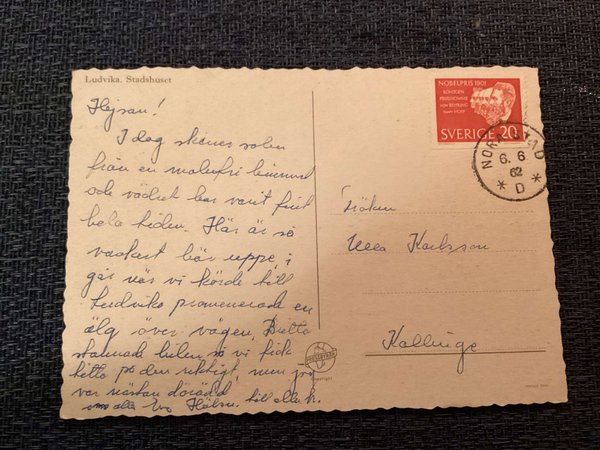 Ludvika. Stadshuset
Hejsan!
I dag skiner solen
från en molnfri himmel
och vädret har varit fint
hela tiden. Här är så
vackert här uppe, i
går när vi körde till
Ludvika promenerade en
älg över vägen,
stannade bilen så vi fick
titta på den riktigt, men jag
var nästan dörädd
till alla
NOBELPRIS 1901
RÖNTGEN
PRUDHOMME
VON BEHRING
VAN'T HOFF
SVERIGE 20
6. 6
62
* D *
Fröken
Ulla Karlsson
Kallinge